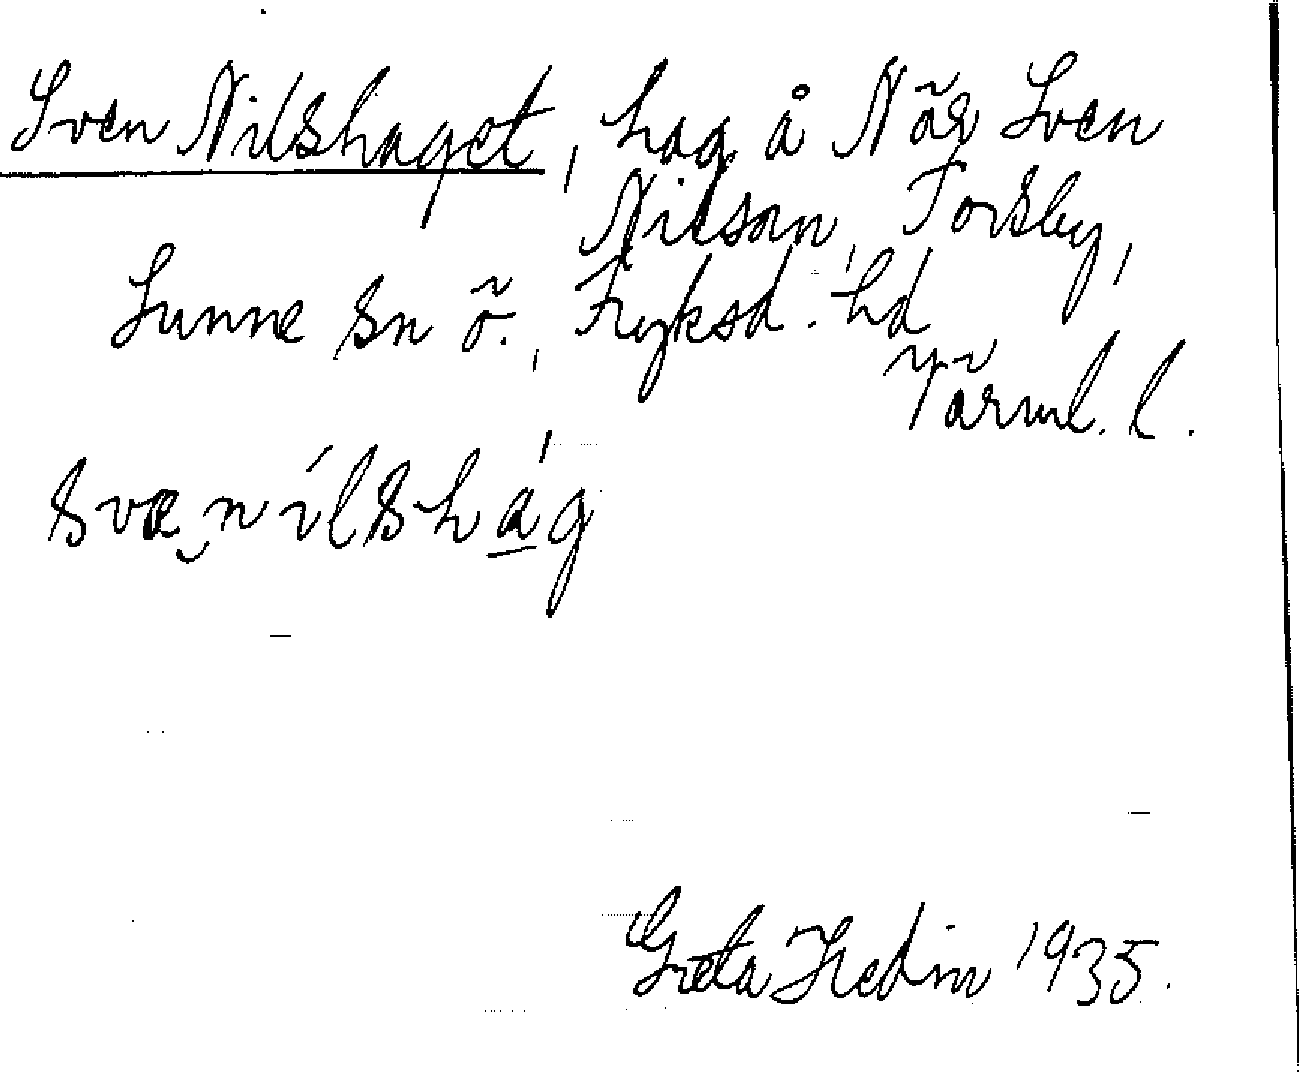 Sven Nilshaget, hag å När Sven
Nilson, Torsby,
Sunne sn ö., Fryksd. hd
Värml. l.
svænilshág
Greta Hedin 1935.